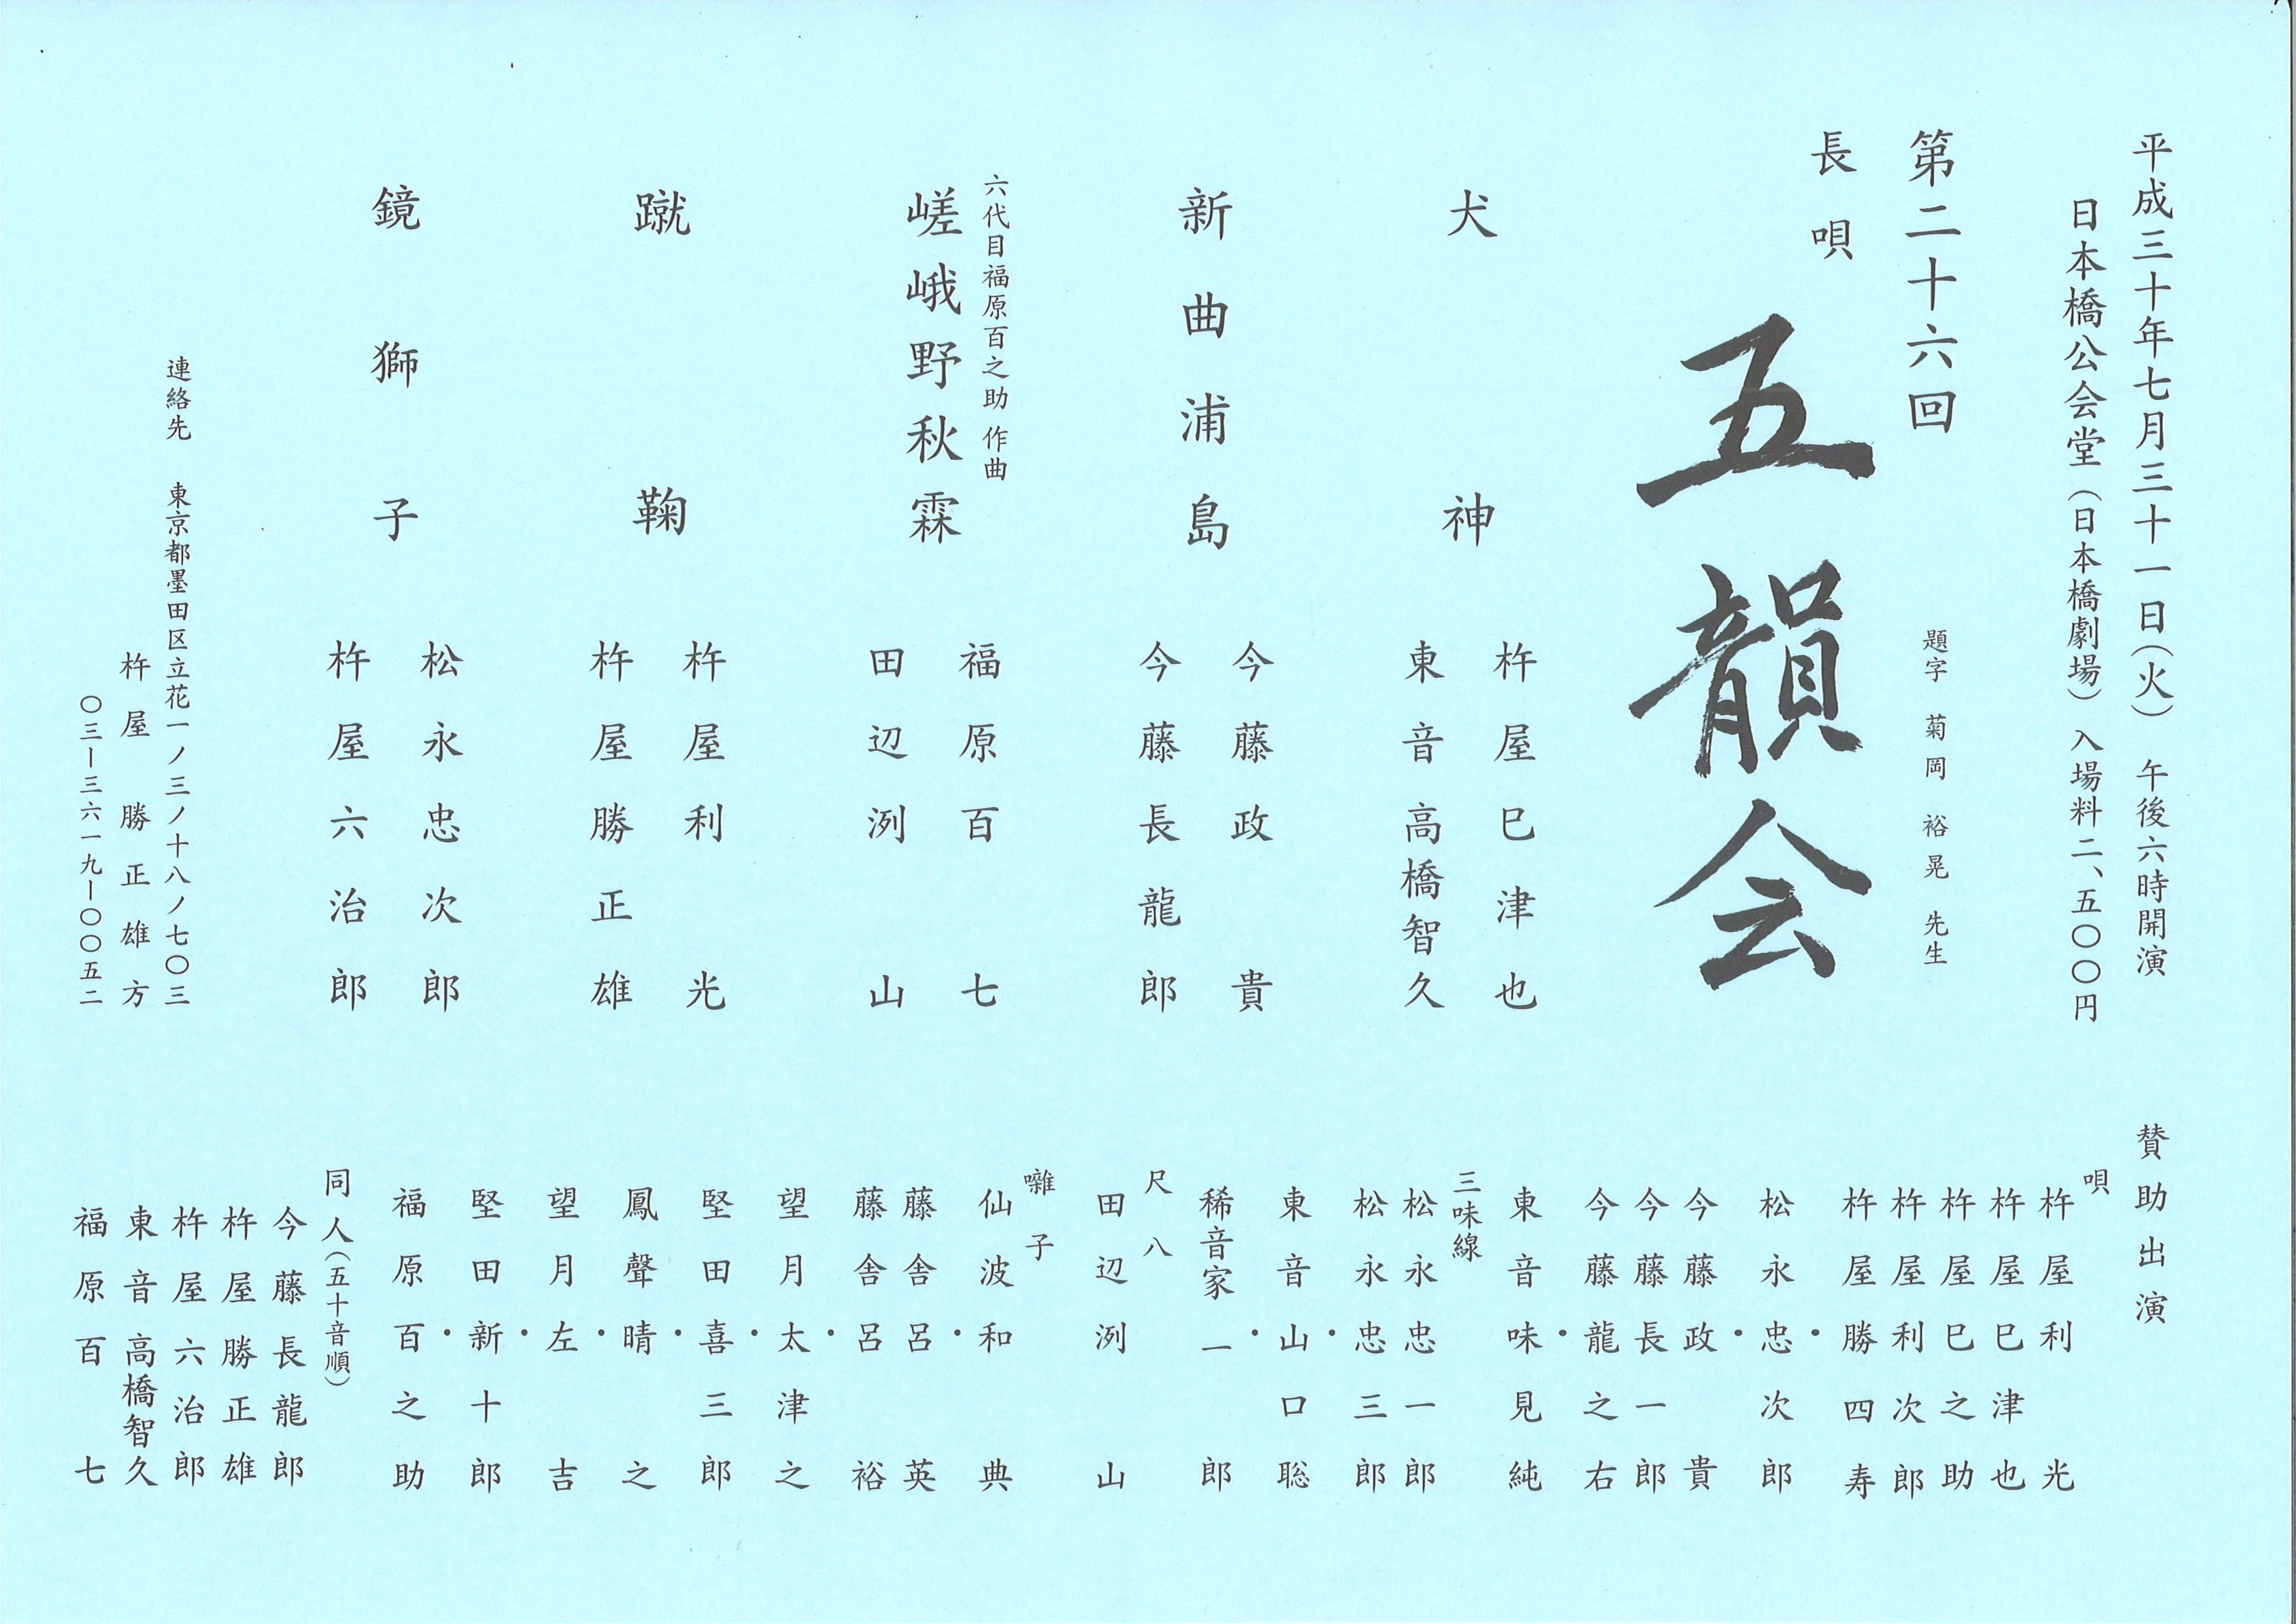 平成三十年七月三十一日(火) 午後六時開演
日本橋公会堂(日本橋劇場) 入場料二、五〇〇円
第二十六回
題字 菊岡 裕晃 先生
長唄
五韻会
犬神
杵屋巳津也
東音高橋智久
新曲浦島
今藤政貴
今藤長龍郎
六代目福原百之助 作曲
嵯峨野秋霖
福原百七
田辺洌山
蹴鞠
杵屋利光
杵屋勝正雄
鏡獅子
松永忠次郎
杵屋六治郎
連絡先 東京都墨田区立花一ノ三ノ十八ノ七〇三
杵屋 勝正雄方
〇三ー三六一九ー〇〇五二
賛助出演
唄
杵屋利光
杵屋巳津也
杵屋巳之助
杵屋利次郎
杵屋勝四寿
・
松永忠次郎
・
今藤政貴
今藤長一郎
今藤龍之右
・
東音味見純
三味線
松永忠一郎
松永忠三郎
・
東音山口聡
・
稀音家一郎
尺八
田辺洌山
囃子
仙波和典
・
藤舎呂英
藤舎呂裕
・
望月太津之
・
堅田喜三郎
・
鳳聲晴之
・
望月左吉
・
堅田新十郎
・
福原百之助
同人(五十音順)
今藤長龍郎
杵屋勝正雄
杵屋六治郎
東音高橋智久
福原百七